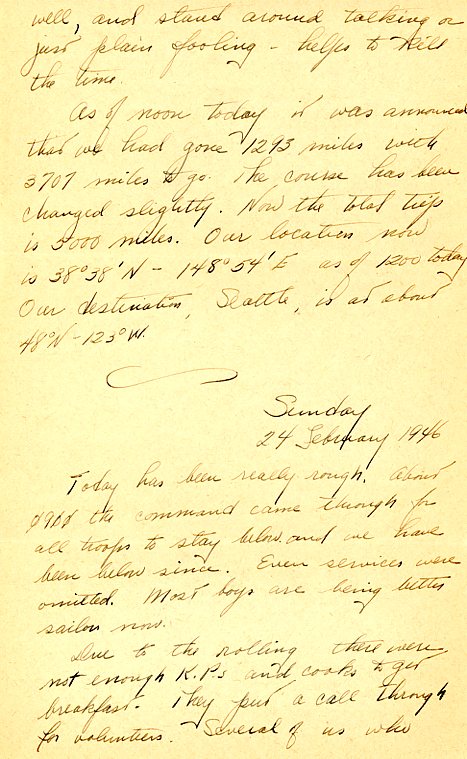 well, and stand around talking or
just plain fooling - helps to kill
the time.
As of noon today it was announced
that we had gone 1293 miles with
3707 miles to go. The course has been
changed slightly. Now the total trip
is 5000 miles. Our location now
is 38°38'N - 148°54'E as of 1200 today
Our destination, Seattle, is at about
48°N - 123°W.
Sunday
24 February 1946
Today has been really rough. About
0900 the command came through for
all troops to stay below and we have
been below since. Even services were
omitted. Most boys are being better
sailors now.
Due to the rolling there were
not enough K.P.s and cooks to get
breakfast. They put a call through
for volunteers. Several of us who